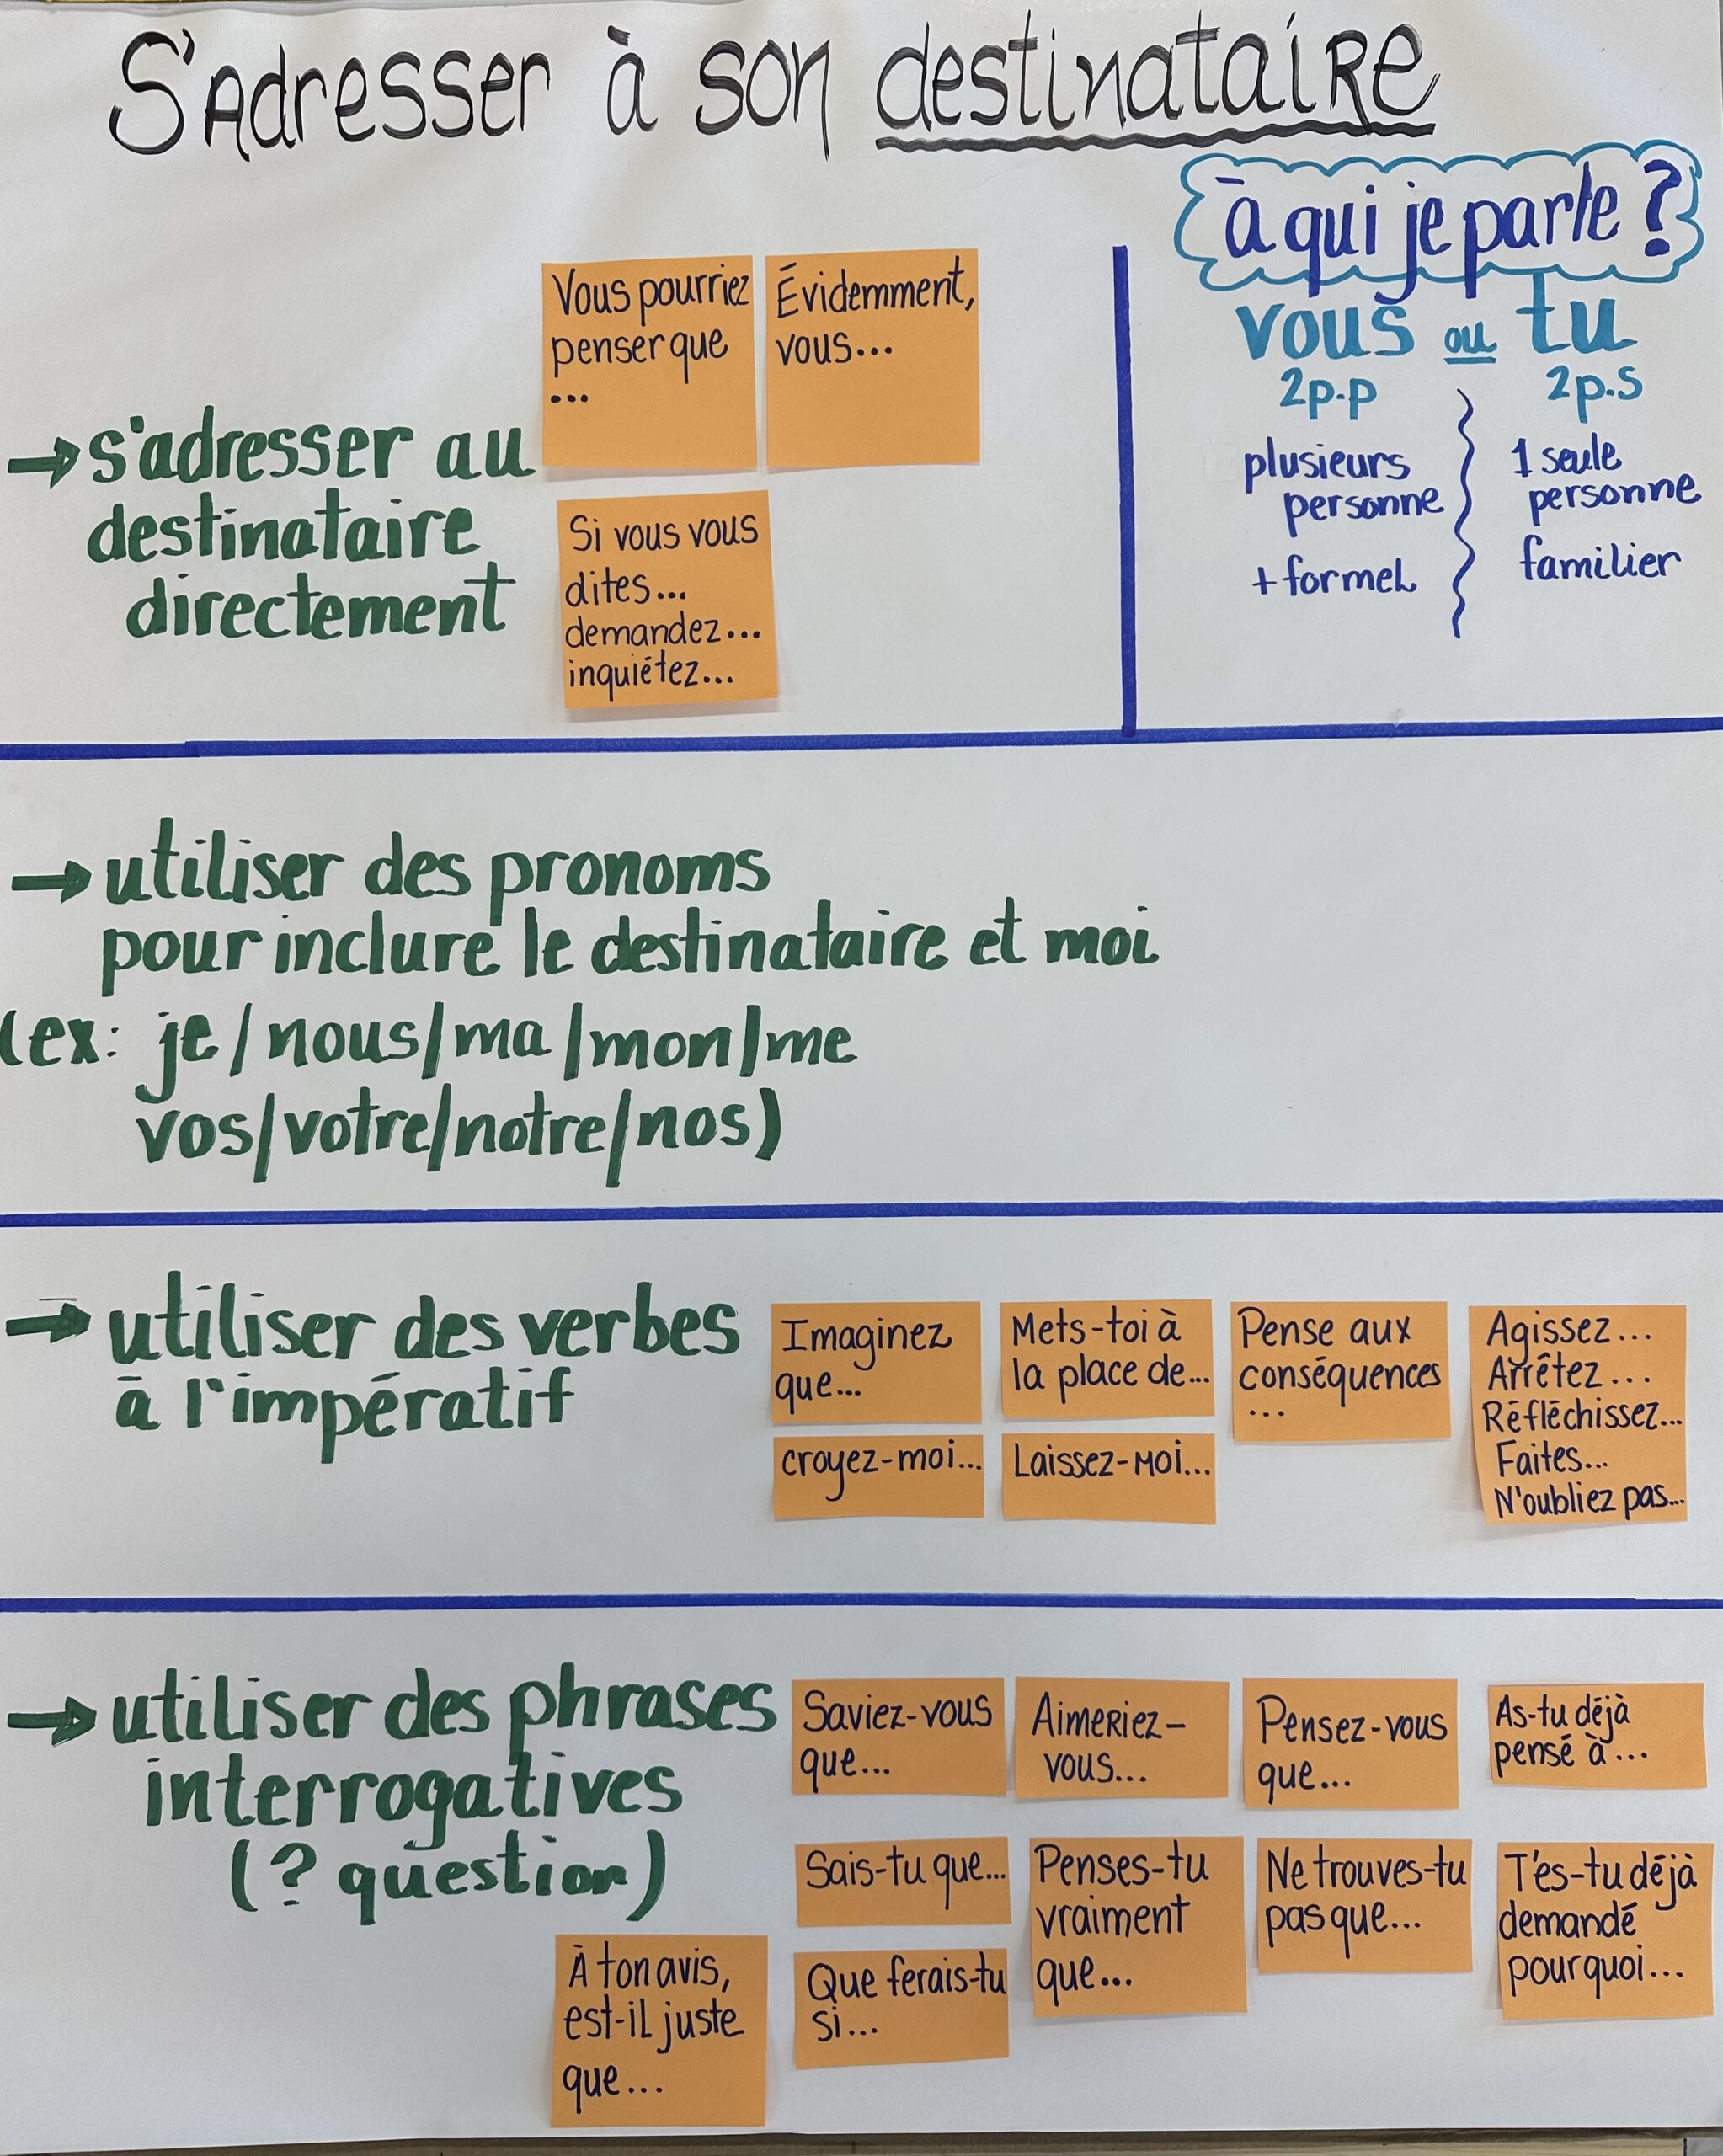 S'Adresser à son destinataire
à qui je parle ?
vous ou tu
2p.p 2p.s
plusieurs personne
1 seule personne
+ formel
familier
→ s'adresser au
destinataire
directement
Vous pourriez
penser que
...
Évidemment,
vous...
Si vous vous
dites...
demandez...
inquiétez...
→ utiliser des pronoms
pour inclure le destinataire et moi
(ex: je/nous/ma/mon/me
vos/votre/notre/nos)
→ utiliser des verbes
à l'impératif
Imaginez
que...
Mets-toi à
la place de...
Pense aux
conséquences
...
Agissez...
Arrêtez...
Réfléchissez...
Faites...
N'oubliez pas...
croyez-moi...
Laissez-moi...
→ utiliser des phrases
interrogatives
(? question)
Saviez-vous
que...
Aimeriez-
vous...
Pensez-vous
que...
As-tu déjà
pensé à...
Sais-tu que...
Penses-tu
vraiment
que...
Ne trouves-tu
pas que...
T'es-tu déjà
demandé
pourquoi...
À ton avis,
est-il juste
que...
Que ferais-tu
si...